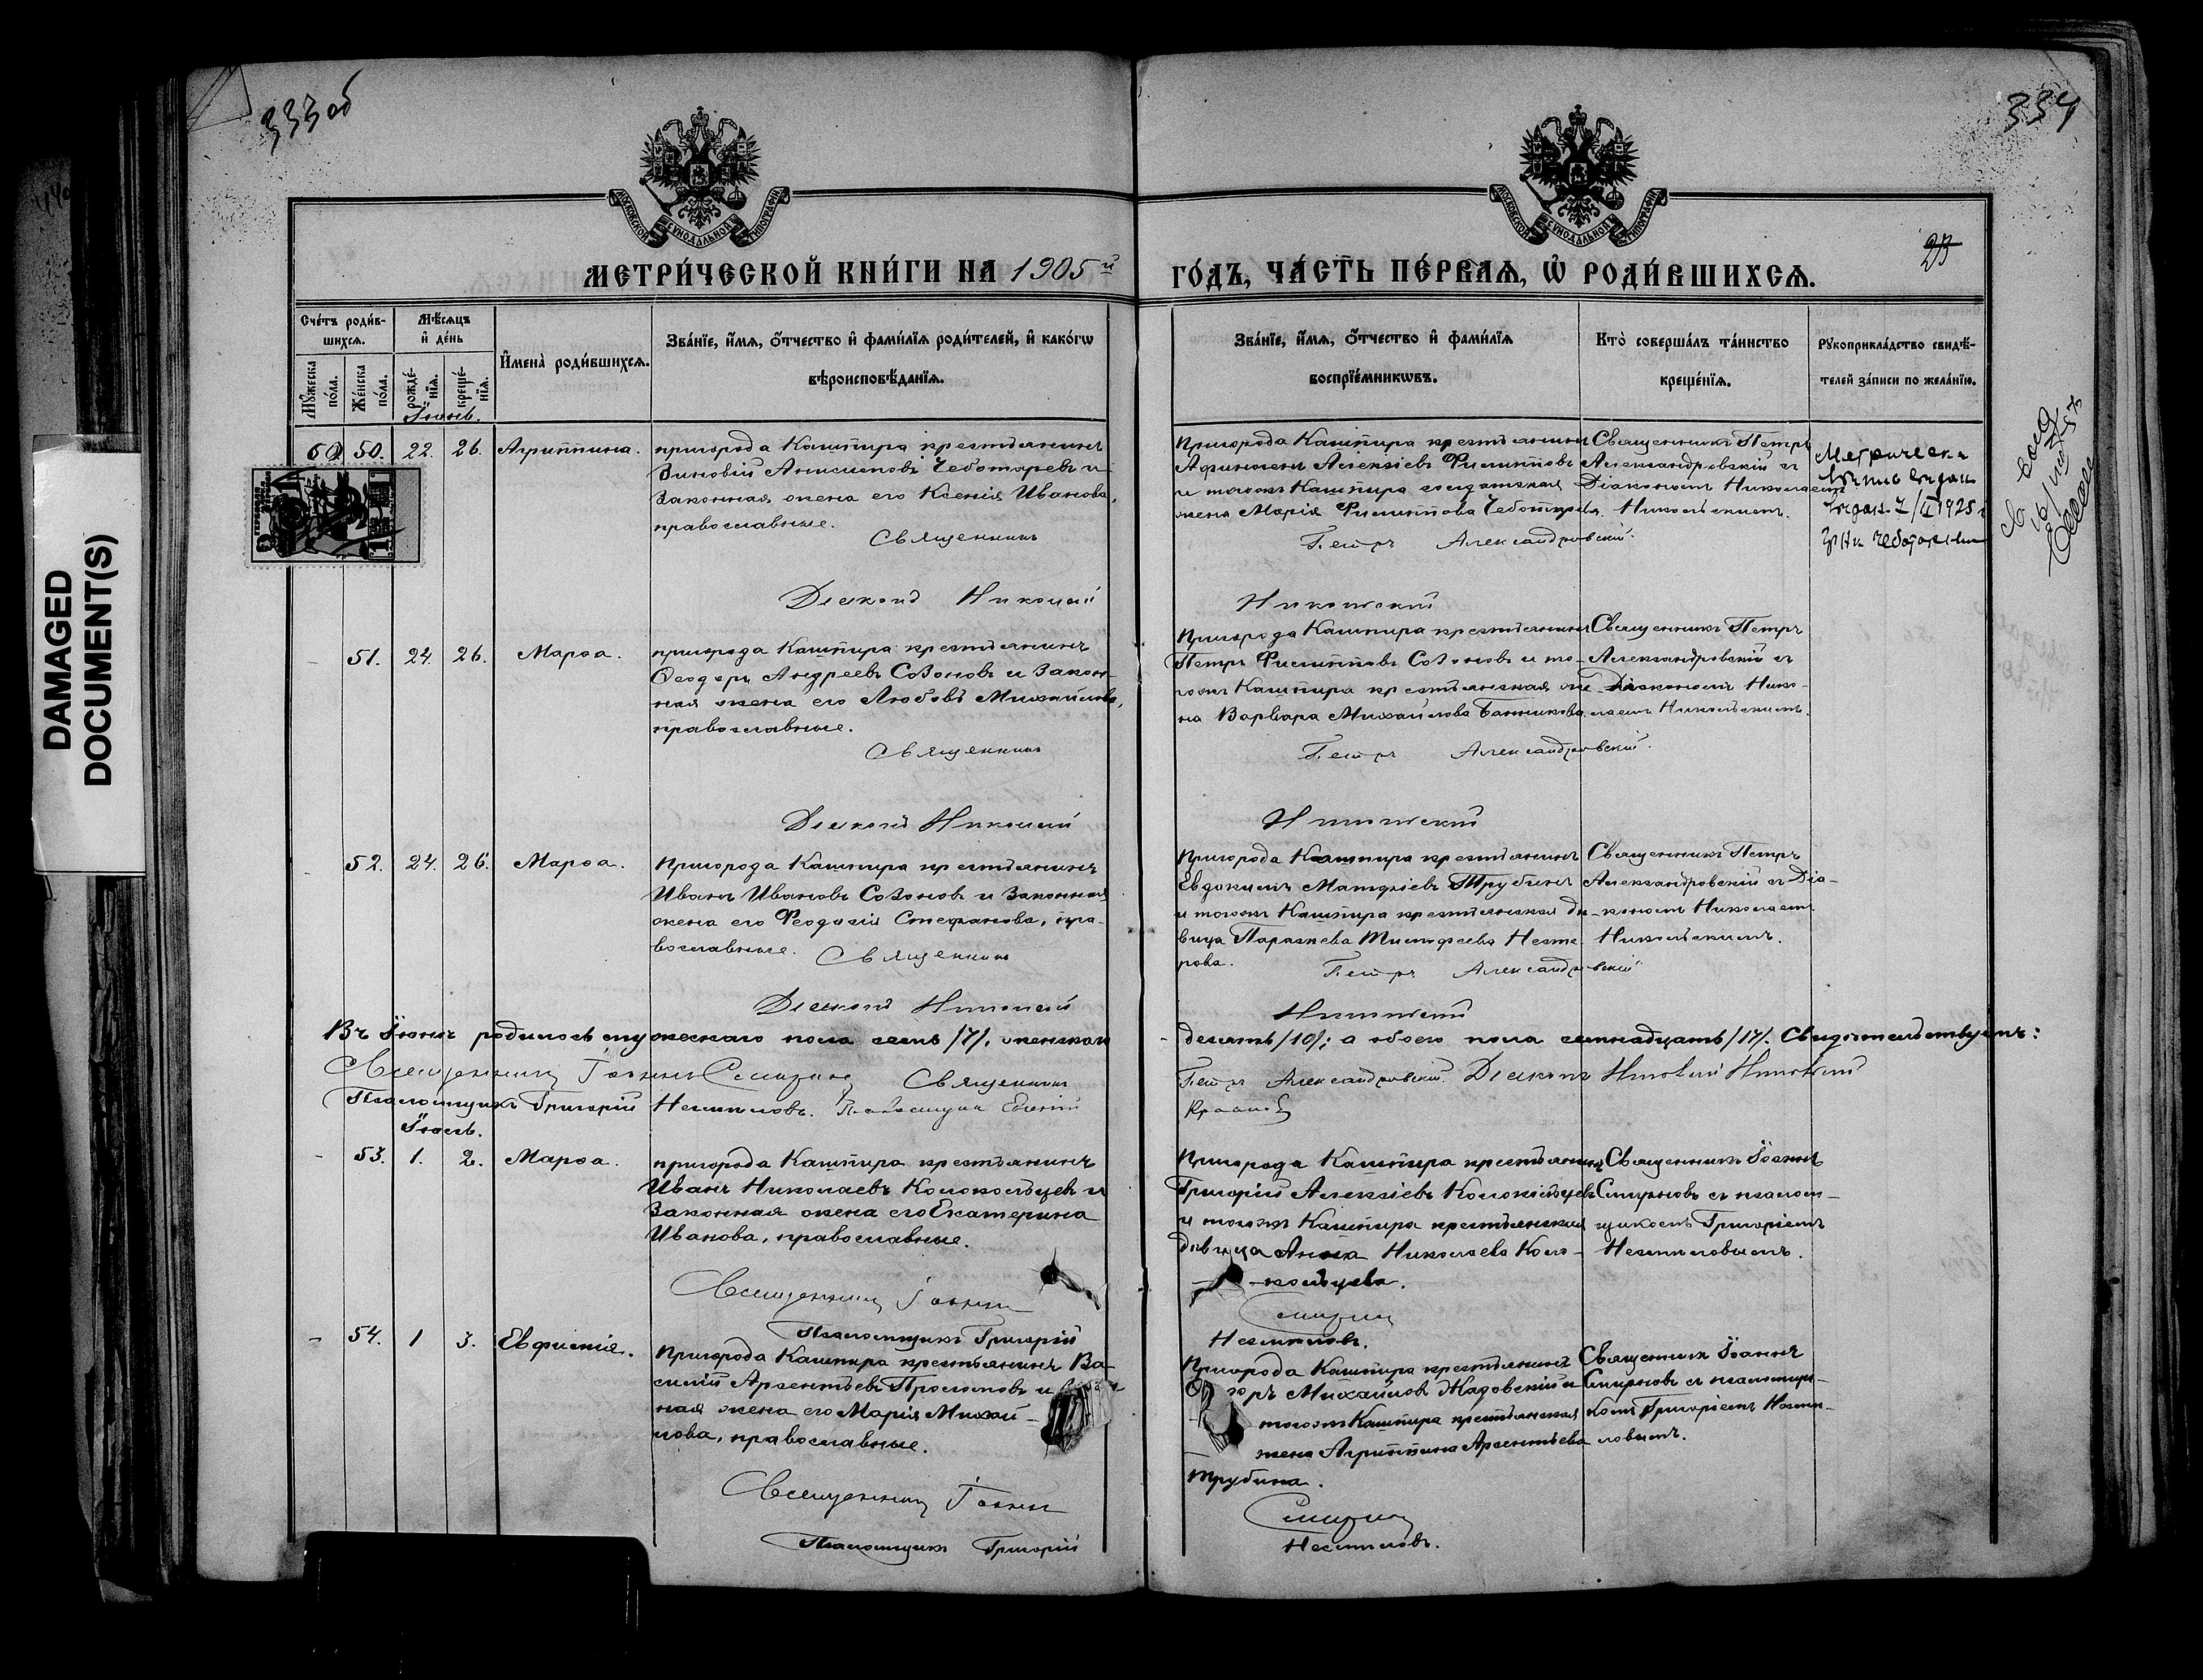 333 об
334
23
DAMAGED
DOCUMENT(S)
МОСКОВСКОЙ СѴНОДАЛЬНОЙ ТИПОГРАФІИ
МОСКОВСКОЙ СѴНОДАЛЬНОЙ ТИПОГРАФІИ
МЕТРИ́ЧЕСКОЙ КНИ́ГИ НА 1905й
ГО́ДЪ, ЧА́СТЬ ПЕ́РВАѦ, Ѡ҆ РОДИ́ВШИХСѦ.
Сче́тъ роди́в-
шихсѧ.
Мѣ́сѧцъ
и҆ де́нь
Мꙋ́жеска
по́ла.
Же́нска
по́ла.
рожде́-
нїѧ.
креще́-
нїѧ.
И҆мена̀ роди́вшихсѧ.
Зва́нїе, и҆́мѧ, ѻ҆́тчество и҆ фами́лїѧ роди́телей, и҆ како́гѡ
вѣроисповѣ́данїѧ.
Зва́нїе, и҆́мѧ, ѻ҆́тчество и҆ фами́лїѧ
воспрїе́мникѡвъ.
Кто̀ соверша́лъ та́инство
креще́нїѧ.
Рꙋкоприкла́дство свидѣ́-
телей за́писи по жела́нїю.
Іюнь.
50. 22. 26. Агриппина.
пригорода Кашпира крестьянинъ
Зиновій Анисимовъ Чеботаревъ и
законная жена его Ксенія Иванова,
православные.
Священникъ
Діаконъ Николай
Пригорода Кашпира крестьянинъ
Афиногенъ Алексіевъ Филипповъ
и тогожъ Кашпира солдатская
жена Марія Филиппова Чеботарева.
Петръ Александровскій.
Никольскій
Священникъ Петръ
Александровскій съ
Діакономъ Николаемъ
Никольскимъ.
Метрическ
выдан 7/II 1925 г
Чеботарев
51. 24. 26. Марѳа.
пригорода Кашпира крестьянинъ
Ѳеодоръ Андреевъ Созоновъ и закон-
ная жена его Любовь Михайлова,
православные.
Священникъ
Діаконъ Николай
Пригорода Кашпира крестьянинъ
Петръ Филипповъ Созоновъ и то-
гожъ Кашпира крестьянская же-
на Варвара Михайлова Банникова.
Петръ Александровскій.
Никольскій
Священникъ Петръ
Александровскій съ
Діакономъ Нико-
лаемъ Никольскимъ.
52. 24. 26. Марѳа.
Пригорода Кашпира крестьянинъ
Иванъ Ивановъ Созоновъ и законная
жена его Феодосія Стефанова, пра-
вославные.
Священникъ
Діаконъ Николай
Пригорода Кашпира крестьянинъ
Евдокимъ Матфіевъ Трубинъ
и тогожъ Кашпира крестьянская дѣ-
вица Параскева Тимофеева Несте-
рова.
Петръ Александровскій
Никольскій
Священникъ Петръ
Александровскій съ Діа-
кономъ Николаемъ
Никольскимъ.
Въ Іюнѣ родилось мужескаго пола семь /7/, женскаго
десять /10/; а обоего пола семнадцать /17/. Свидѣтельствуемъ:
Священникъ Іоаннъ Смирновъ Священникъ
Петръ Александровскій. Діаконъ Николай Никольскій
Псаломщикъ Григорій Несмѣловъ. Псаломщикъ
Іюль.
53. 1. 2. Марѳа.
пригорода Кашпира крестьянинъ
Иванъ Николаевъ Колокольцевъ и
законная жена его Екатерина
Иванова, православные.
Священникъ Іоаннъ
Псаломщикъ Григорій
Пригорода Кашпира крестьянинъ
Григорій Алексіевъ Колокольцевъ
и тогожъ Кашпира крестьянская
дѣвица Анна Николаева Коло-
кольцева.
Смирновъ
Несмѣловъ.
Священникъ Іоаннъ
Смирновъ съ псалом-
щикомъ Григоріемъ
Несмѣловымъ.
54. 1 3. Евфимія.
Пригорода Кашпира крестьянинъ Ва-
силій Арсентьевъ и
ная жена его Марія Михай-
лова, православные.
Священникъ Іоаннъ
Псаломщикъ Григорій
Пригорода Кашпира крестьянинъ
Михайловъ Жадовскій и
тогожъ Кашпира крестьянская
жена Агриппина Арсентьева
Трубина.
Смирновъ
Несмѣловъ.
Священникъ Іоаннъ
Смирновъ съ псаломщи-
комъ Григоріемъ Несмѣ-
ловымъ.